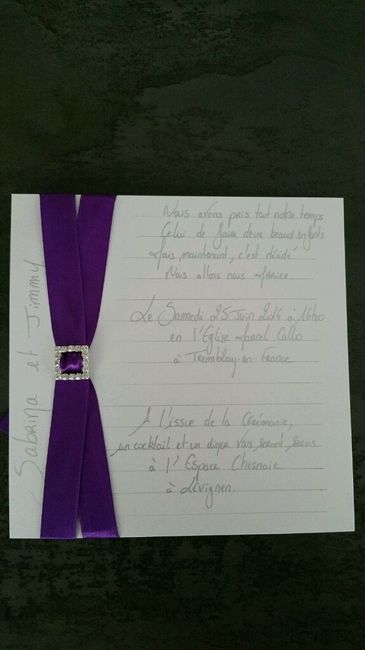 Sabrina et Jimmy
Nous avons pris tout notre temps
Celui de faire deux beaux enfants
Mais maintenant, c'est décidé
Nous allons nous Marier
Le Samedi 25 Juin 2016 à 14h00
en l'Eglise Marcel Callo
à Tremblay-en-France
A l'issue de la Cérémonie,
un cocktail et un diner vous seront servis
à l'Espace Chesnaie
à Lévignen.